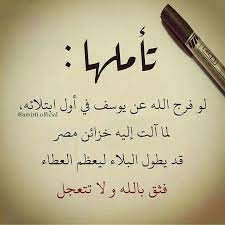 تأملها :
لو فرج الله عن يوسف في أول ابتلائه،
@amirti.official
لما آلت إليه خزائن مصر
قد يطول البلاء ليعظم العطاء
فثق بالله و لا تتعجل